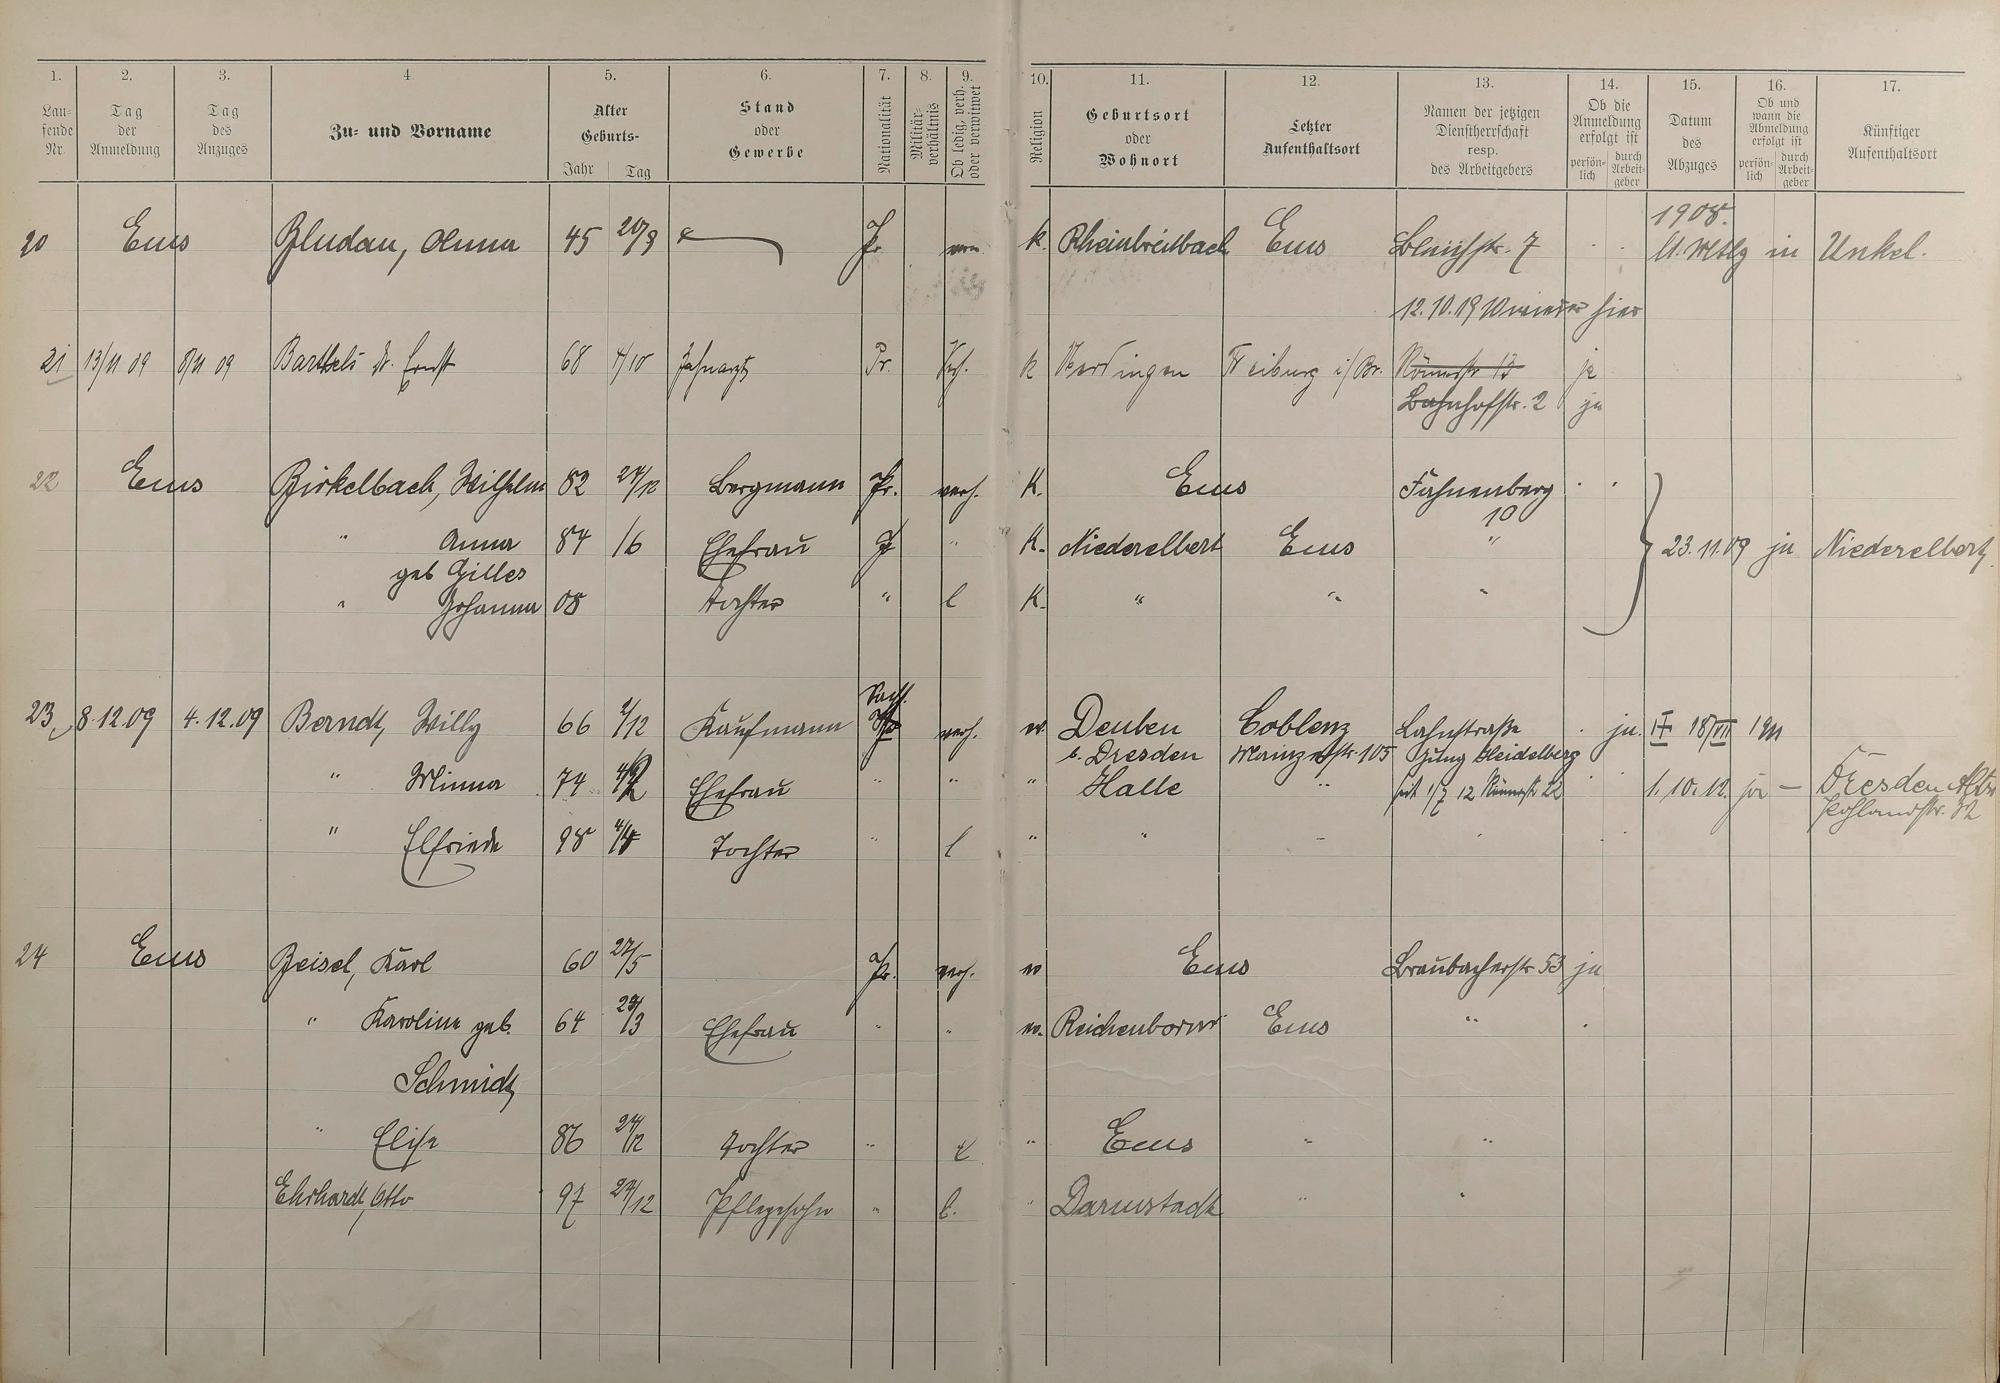 1. 2. 3. 4 5. 6. 7. 8. 9. 10. 11. 12. 13. 14. 15. 16. 17.
Lau-
fende
Nr.
Tag
der
Anmeldung
Tag
des
Anzuges
Zu- und Vorname
Alter
Geburts-
Jahr Tag
Stand
oder
Gewerbe
Nationalität
Militär-
verhältnis
Ob ledig, verh.
oder verwitwet
Religion
Geburtsort
oder
Wohnort
Letzter
Aufenthaltsort
Namen der jetzigen
Dienstherrschaft
resp.
des Arbeitgebers
Ob die
Anmeldung
erfolgt ist
persön-
lich
durch
Arbeit-
geber
Datum
des
Abzuges
Ob und
wann die
Abmeldung
erfolgt ist
persön-
lich
durch
Arbeit-
geber
Künftiger
Aufenthaltsort
1908.
20 Ems Bludau, Anna 45 20/9 Pr. k. Rheinbreitbach Ems 7 in Unkel.
12.10.1910 wieder hier
21 13/11 09 8/11 09 Barthels Dr. Ernst 68 4/10 Zahnarzt Pr. Verh. k Freiburg i/Br. Römerstr 13 ja
Bahnhofstr. 2 ja
22 Ems Birkelbach, Wilhelm 82 27/12 Bergmann Pr. verh. K. Ems Fahnenberg
10
" Anna 84 /6 Ehefrau " K. Niederelbert Ems " 23.11.09 ja Niederelbert
geb Gilles
" Johanna 08 Tochter " l K. " " "
23 8.12.09 4.12.09 Berndt, Willy 66 2/12 Kaufmann Sachs. verh. ev. Deuben Coblenz Lahnstraße ja. 18/VII
b. Dresden Mainzerstr. 105 Heidelberg
" Minna 74 Ehefrau " " " Halle " seit 1/7 12 Römerstr 22 1.10.12. ja — Dresden Altst
Pohlandstr. 32
" Elfriede 98 Tochter " l " "
24 Ems Beisel, Karl 60 27/5 Pr. verh. ev Ems Braubacherstr 53 ja
" Karoline geb. 64 /3 Ehefrau " " ev. Reichenborn Ems "
Schmidt
" Elise 86 Tochter " l " Ems " "
Ehrhardt, Otto 97 27/12 Pflegesohn " l. " Darmstadt " "